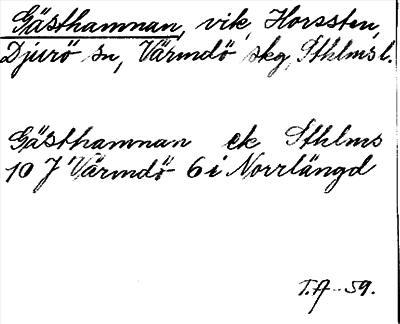 Gästhamnan, vik, Horssten,
Djurö sn, Värmdö skg, Sthlms l.
Gästhamnan ek Sthlms
10 J Värmdö 6 i Norrlängd
T.A -59.